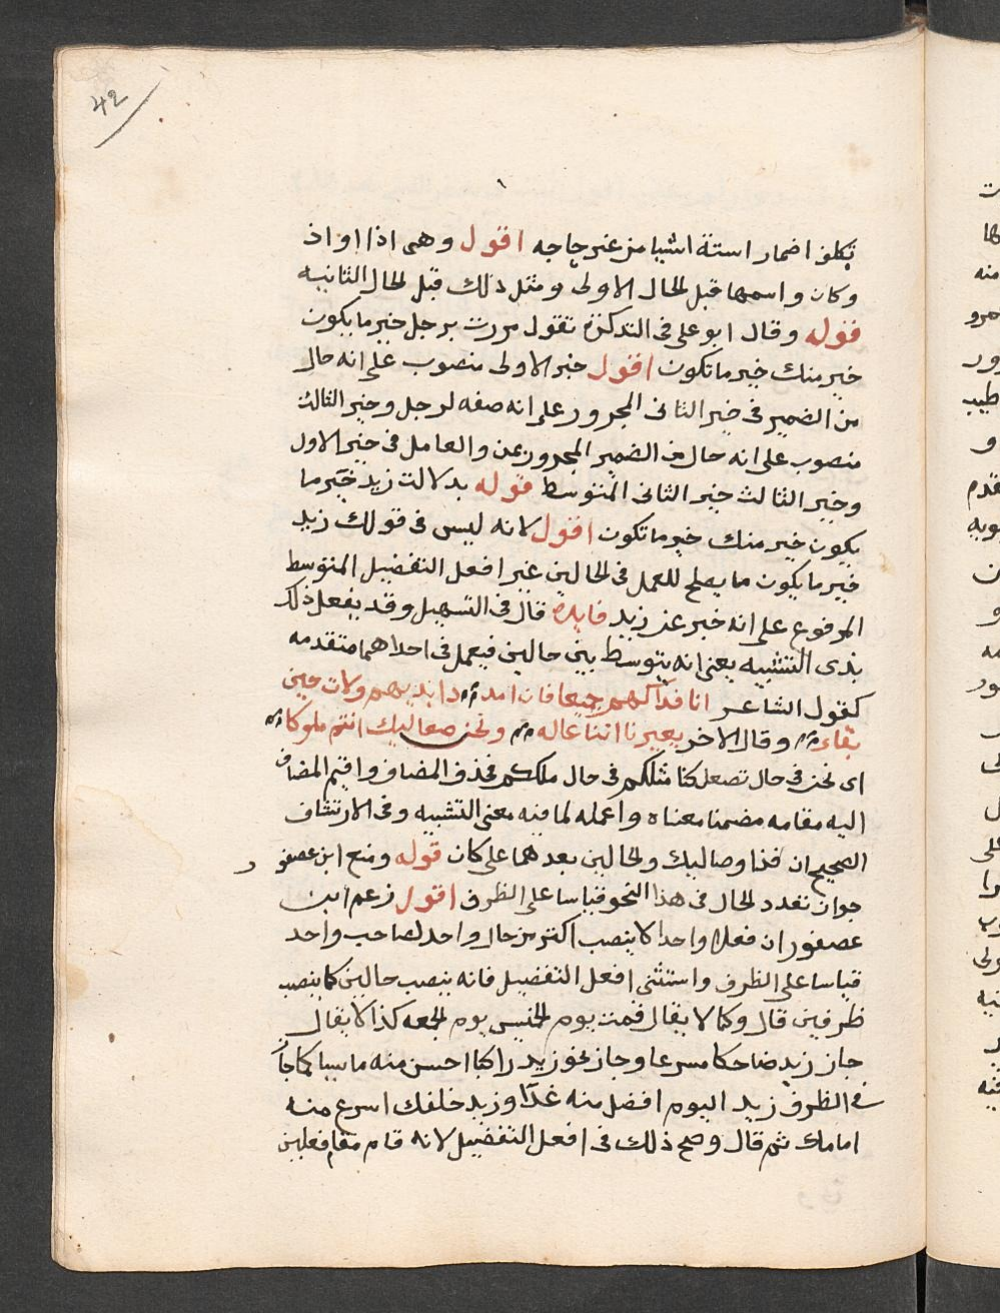 42
تكلف اضمار استة اشيا من غير حاجه اقول وهى اذا او اذ
وكان واسمها قبل الحال الاولى ومثل ذلك قبل الحال الثانيه
قوله وقال ابو على فى التذكرة تقول مررت برجل خير ما يكون
خير منك خير ما تكون اقول خير الاولى منصوب على انه حال
من الضمير فى خير الثانى المجرور على انه صفه لرجل وخير الثالث
منصوب على انه حال من الضمير المجرور بمن والعامل فى خير الاول
وخير الثالث خير الثانى المتوسط قوله بدلالت زيد خير ما
يكون خير منك خير ما تكون اقول لانه ليس فى قولك زيد
خير ما يكون ما يصلح للعمل فى الحالين غير افعل التفضيل المتوسط
المرفوع على انه خبر عن زيد فايدة قال فى التسهيل وقد يفعل ذلك
بذى التشبيه يعنى انه يتوسط بين حالين فيعمل فى احداهما متقدمه
كقول الشاعر انا فذا كهم جميعا فان امد دابيدهم ولات حين
بقاء وقال الاخر يعيرنا اننا عاله ونحن صعاليك انتم ملوكا
اى نحن فى حال تصعلكنا مثلكم فى حال ملككم فحذف المضاف واقيم المضاف
اليه مقامه مضمنا معناه واعمله لما فيه معنى التشبيه وفى الارتشاف
الصحيح ان فذا وصاليك والحالين بعدهما على كان قوله ومنع ابن عصفو ر
جواز تعدد الحال فى هذا النحو قياسا على الظرف اقول زعم ابن
عصفور ان فعلا واحدا لا ينصب اكثر من حال واحد لصاحب واحد
قياسا على الظرف واستثنى افعل التفضيل فانه ينصب حالين كما ينصب
ظرفين قال وكما لا يقال قمت يوم الخميس يوم الجمعه كذا لا يقال
جاز زيد ضاحكا مسرعا وجاز نحو زيد راكبا احسن منه ماشيا كما جاز
فى الظرف زيد اليوم افضل منه غدا وزيد خلفك اسرع منه
امامك ثم قال وصح ذلك فى افعل التفضيل لانه قام مقام فعلين